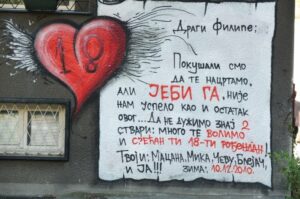 18
Драги Филипе;
Покушали смо
да те нацртамо,
али ЈЕБИ ГА, није
нам успело као и остатак
овог...Да не дужимо знај 2
ствари: много те волимо
и срећан ти 18-ти рођендан!
Твоји: Мацана, Мика, Чеву, Брејач,
и ЈА!!! зима: 10.12.2010.